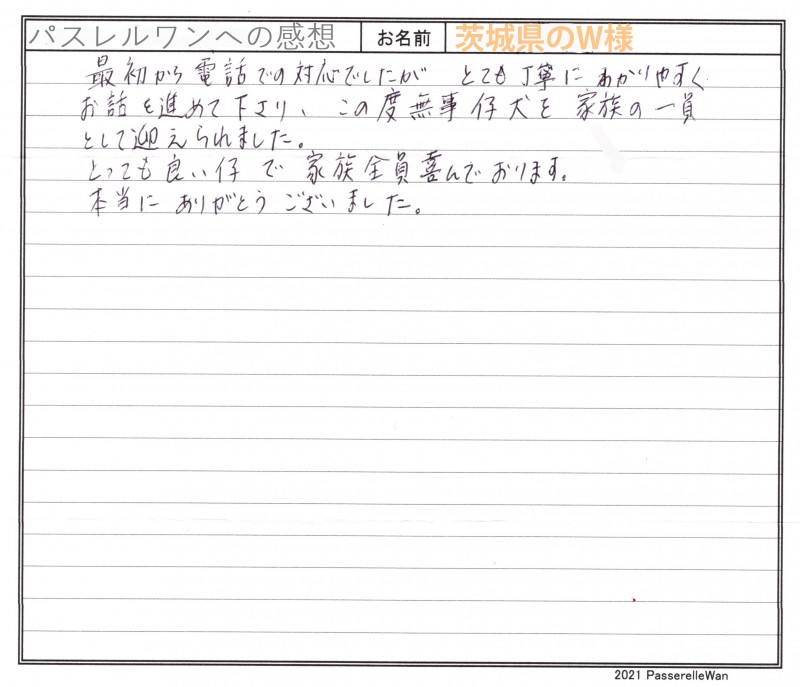 パスレルワンへの感想 お名前 茨城県のW様
最初から電話での対応でしたが とても丁寧にわかりやすく
お話を進めて下さり、この度無事仔犬を家族の一員
として迎えられました。
とっても良い仔で家族全員喜んでおります。
本当にありがとうございました。
2021 PasserelleWan